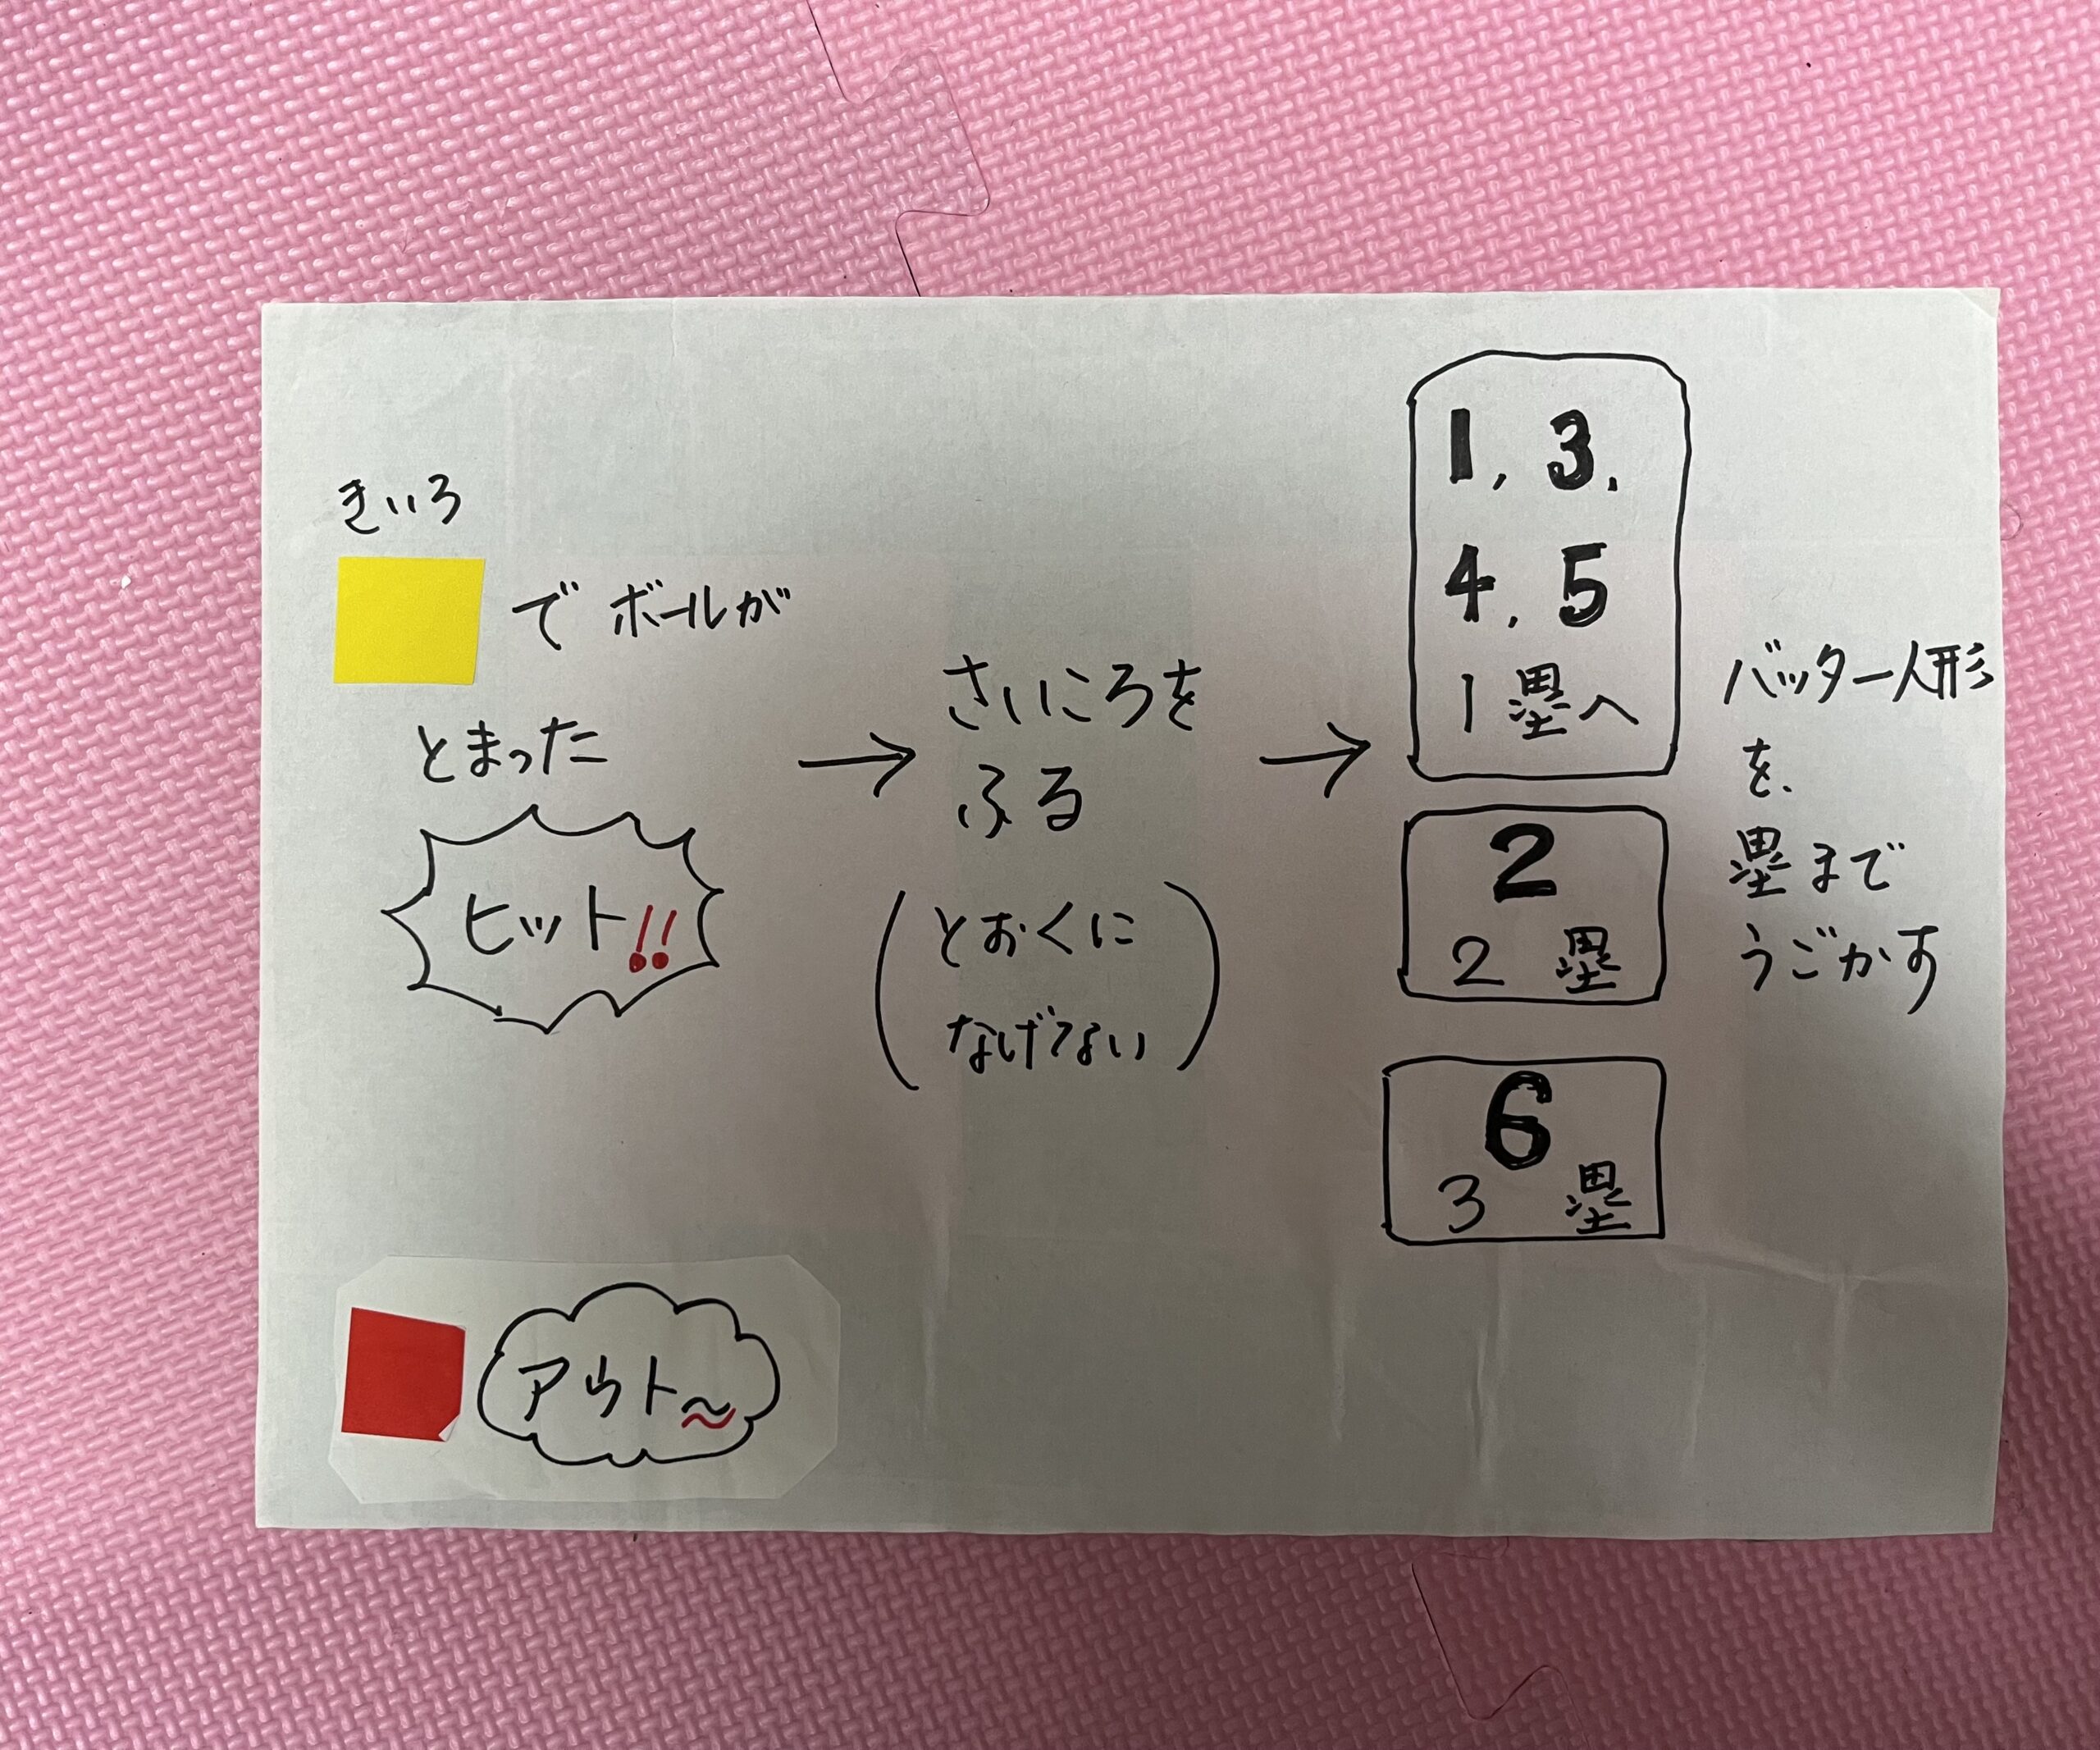 きいろ
で ボールが
とまった
ヒット!!
→
さいころを
ふる
(とおくに
なげない)
→
1, 3,
4, 5
1塁へ
2
2 塁
6
3 塁
バッター人形
を、
塁まで
うごかす
アウト〜